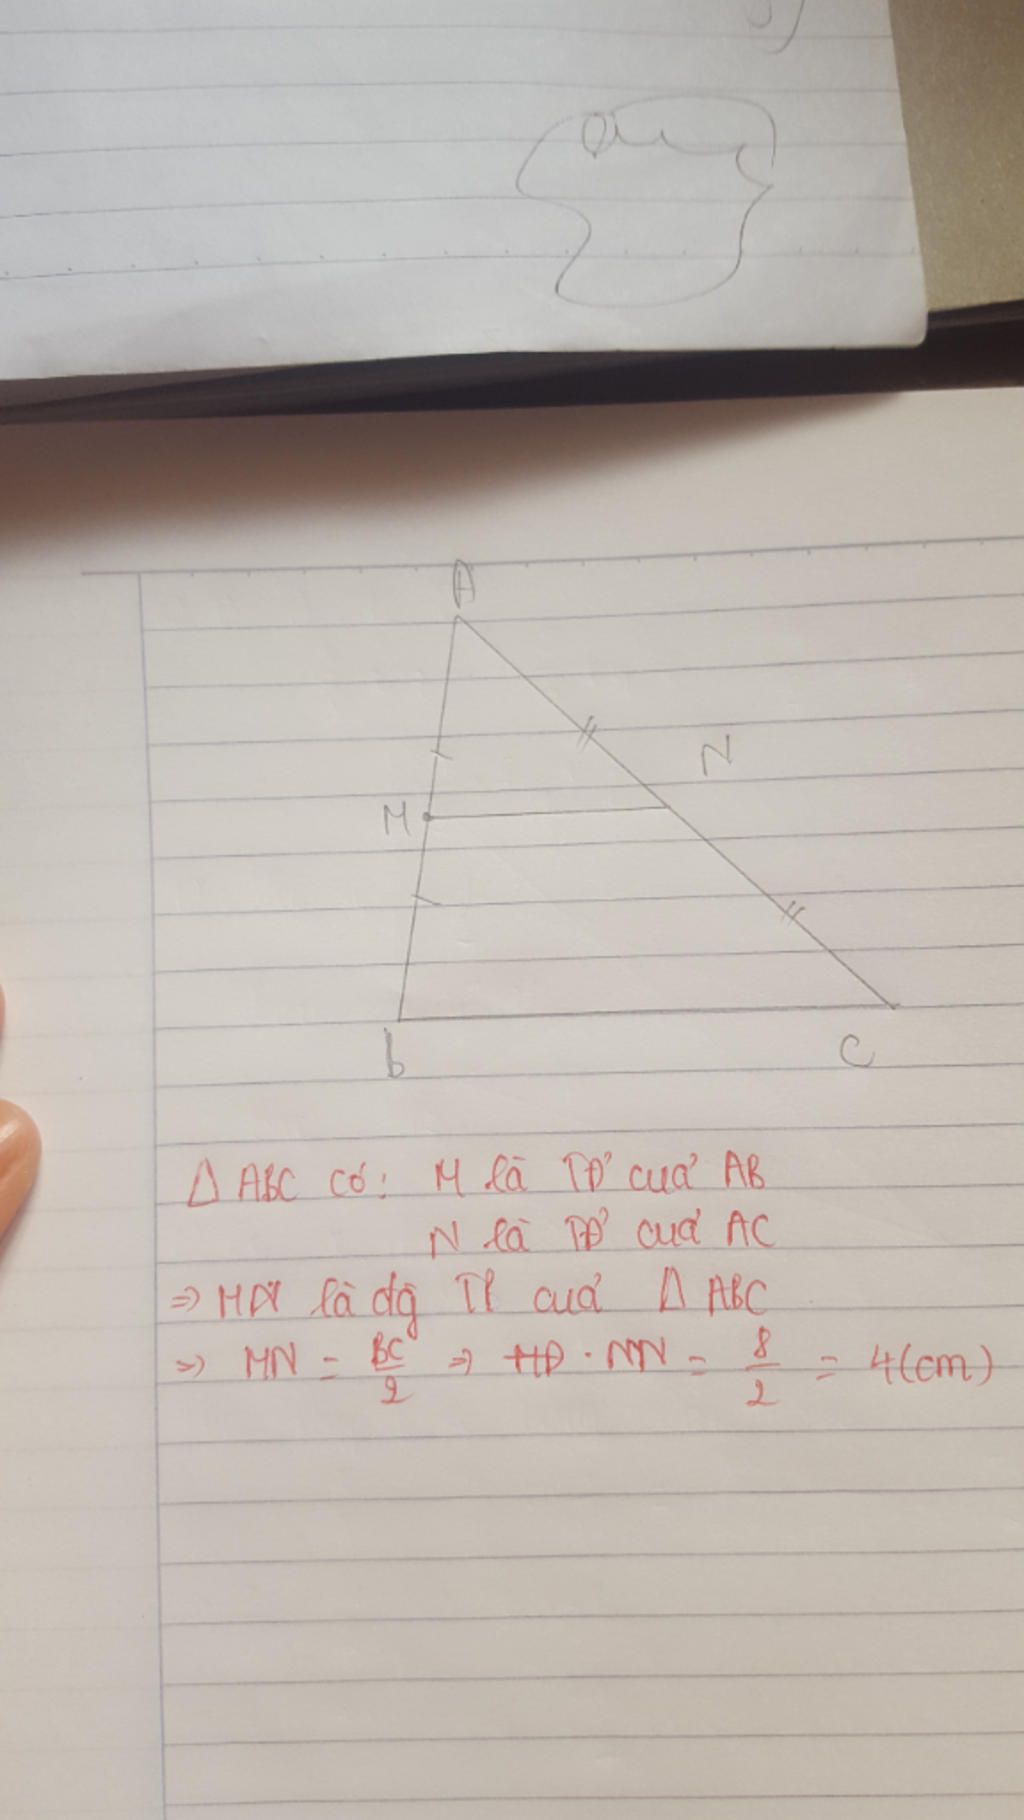 A
N
M
b
C
Δ ABC có: M là TĐ' cuả AB
N là TĐ' cuả AC
=> MN là đg TB cuả Δ ABC
=> MN = BC/2 => MN = 8/2 = 4(cm)